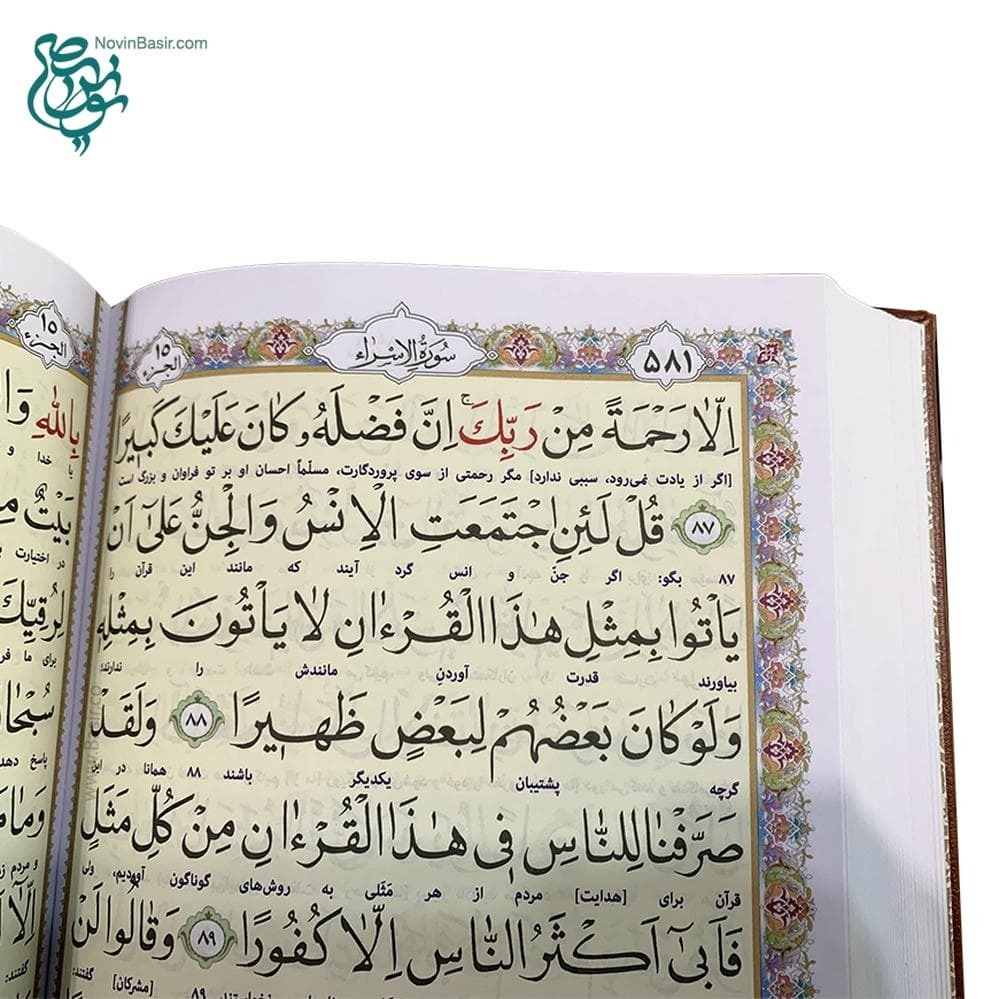 NovinBasir.com
۵۸۱
سُورَةُ الْاِسْرَاء
۱۵
الجزء
اِلّا رَحْمَةً مِنْ رَبِّكَ ۚ اِنَّ فَضْلَهُ كَانَ عَلَيْكَ كَبيرًا
[اگر از یادت نمی‌رود، سببی ندارد] مگر رحمتی از سوی پروردگارت، مسلّماً احسان او بر تو فراوان و بزرگ است
۸۷ قُلْ لَئِنِ اجْتَمَعَتِ الْاِنْسُ وَالْجِنُّ عَلىٰٓ اَنْ
۸۷ بگو: اگر جنّ و انس گرد آیند که مانند این قرآن را
يَاْتُوا بِمِثْلِ هٰذَا الْقُرْءَانِ لَا يَاْتُونَ بِمِثْلِهِ
بیاورند قدرت آوردنِ مانندش را ندارند،
وَلَوْ كَانَ بَعْضُهُمْ لِبَعْضٍ ظَهيرًا ۸۸ وَلَقَدْ
گرچه پشتیبان یکدیگر باشند ۸۸ همانا در این
صَرَّفْنَا لِلنَّاسِ في هٰذَا الْقُرْءَانِ مِنْ كُلِّ مَثَلٍ
قرآن برای [هدایت] مردم از هر، مَثَلی به روش‌های گوناگون آوردیم، ولی
فَاَبىٰٓ اَكْثَرُ النَّاسِ اِلّا كُفُورًا ۸۹ وَقَالُوا لَنْ
[مشرکان] گفتند:
۱۵
الجزء
بِاللهِ وَا
با خدا و
بَيْتٌ مِ
در اختیارت
لِرُقِيِّكَ
برای ما فر
سُبْحَا
پاسخ دهد
وَمَا مَ
و مردم
اِلّا اَ
گفتند: